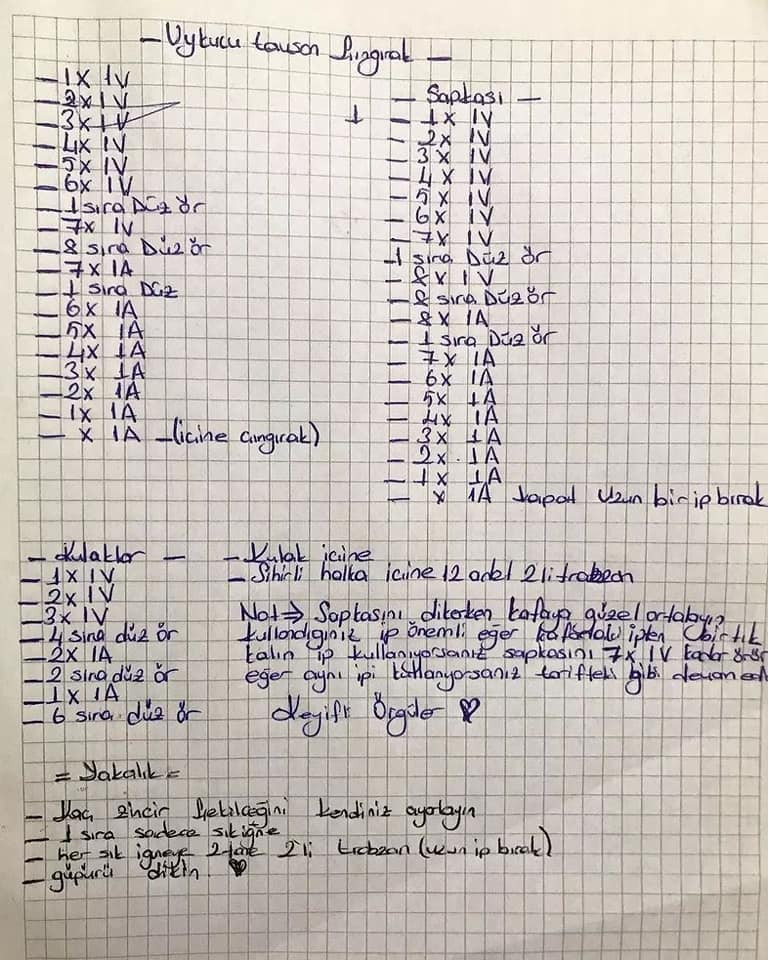 – Uykucu tavşan Çıngırak –
– 1x 1V
– 2x 1V
– 3x 1V
– 4x 1V
– 5x 1V
– 6x 1V
– 1 sıra Düz ör
– 7x 1V
– 8 sıra Düz ör
– 7x 1A
– 1 sıra Düz
– 6x 1A
– 5x 1A
– 4x 1A
– 3x 1A
– 2x 1A
– 1x 1A
– x 1A – (icine çıngırak)
– Şapkası –
1 – 1x 1V
– 2x 1V
– 3x 1V
– 4x 1V
– 5x 1V
– 6x 1V
– 7x 1V
– 1 sıra Düz ör
– 8x 1V
– 8 sıra Düz ör
– 8x 1A
– 1 sıra Düz ör
– 7x 1A
– 6x 1A
– 5x 1A
– 4x 1A
– 3x 1A
– 2x 1A
– 1x 1A
– x 1A kapat uzun bir ip bırak
– Kulaklar –
– 1x 1V
– 2x 1V
– 3x 1V
– 4 sıra düz ör
– 2x 1A
– 2 sıra düz ör
– 1x 1A
– 6 sıra düz ör
– Kulak icine
– Sihirli halka icine 12 adet 2li trabzan
Not ⇒ Şapkasını dikerken kafaya güzel ortalayın
kullandığınız ip önemli eğer kafadaki ipten bir tık
kalın ip kullanıyorsanız şapkasını 7x 1V kadar örün
eğer aynı ipi kullanıyorsanız tarifteki gibi devam ed
Keyifli Örgüler ♡
= Yakalık =
– Kaç zincir çekilceğini kendiniz ayarlayın
– 1 sıra sadece sık iğne
– her sık iğneye 2 tane 2li trabzan (uzun ip bırak)
– güpürü dikin ♡